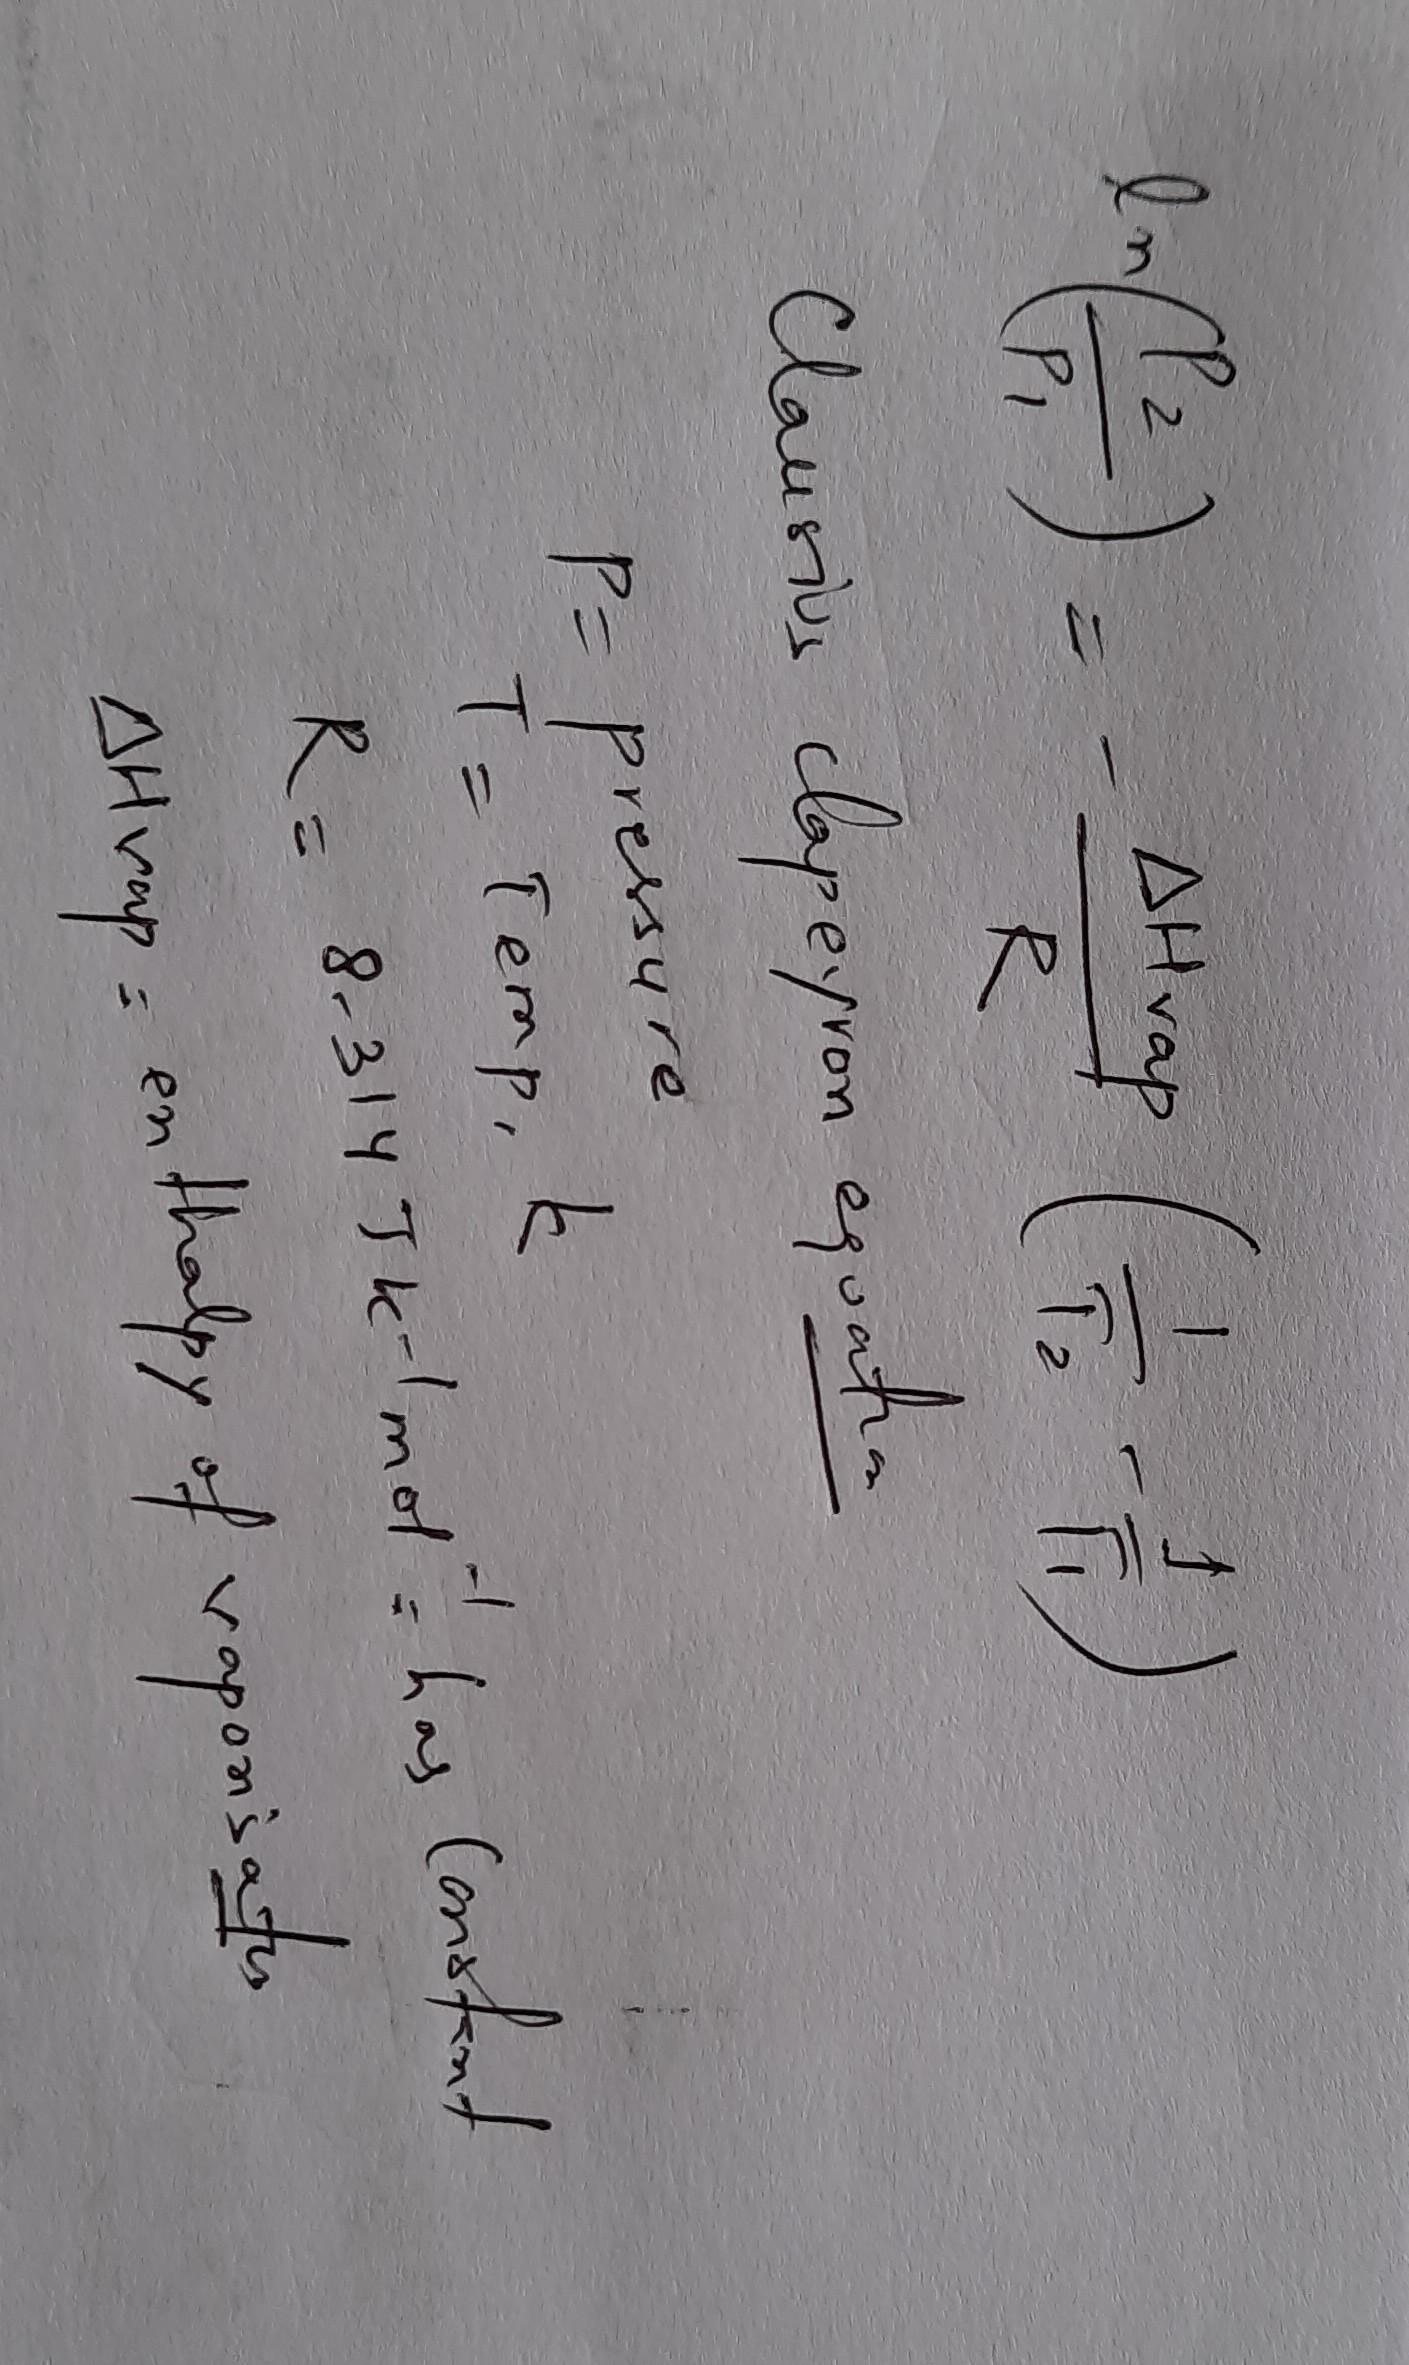 ln(P2/P1) = - ΔHvap/R (1/T2 - 1/T1)
Clausius Clapeyron equation
P = Pressure
T = Temp, K
R = 8.314 J K-1 mol-1 = has Constant
ΔHvap = enthalpy of vaporisation